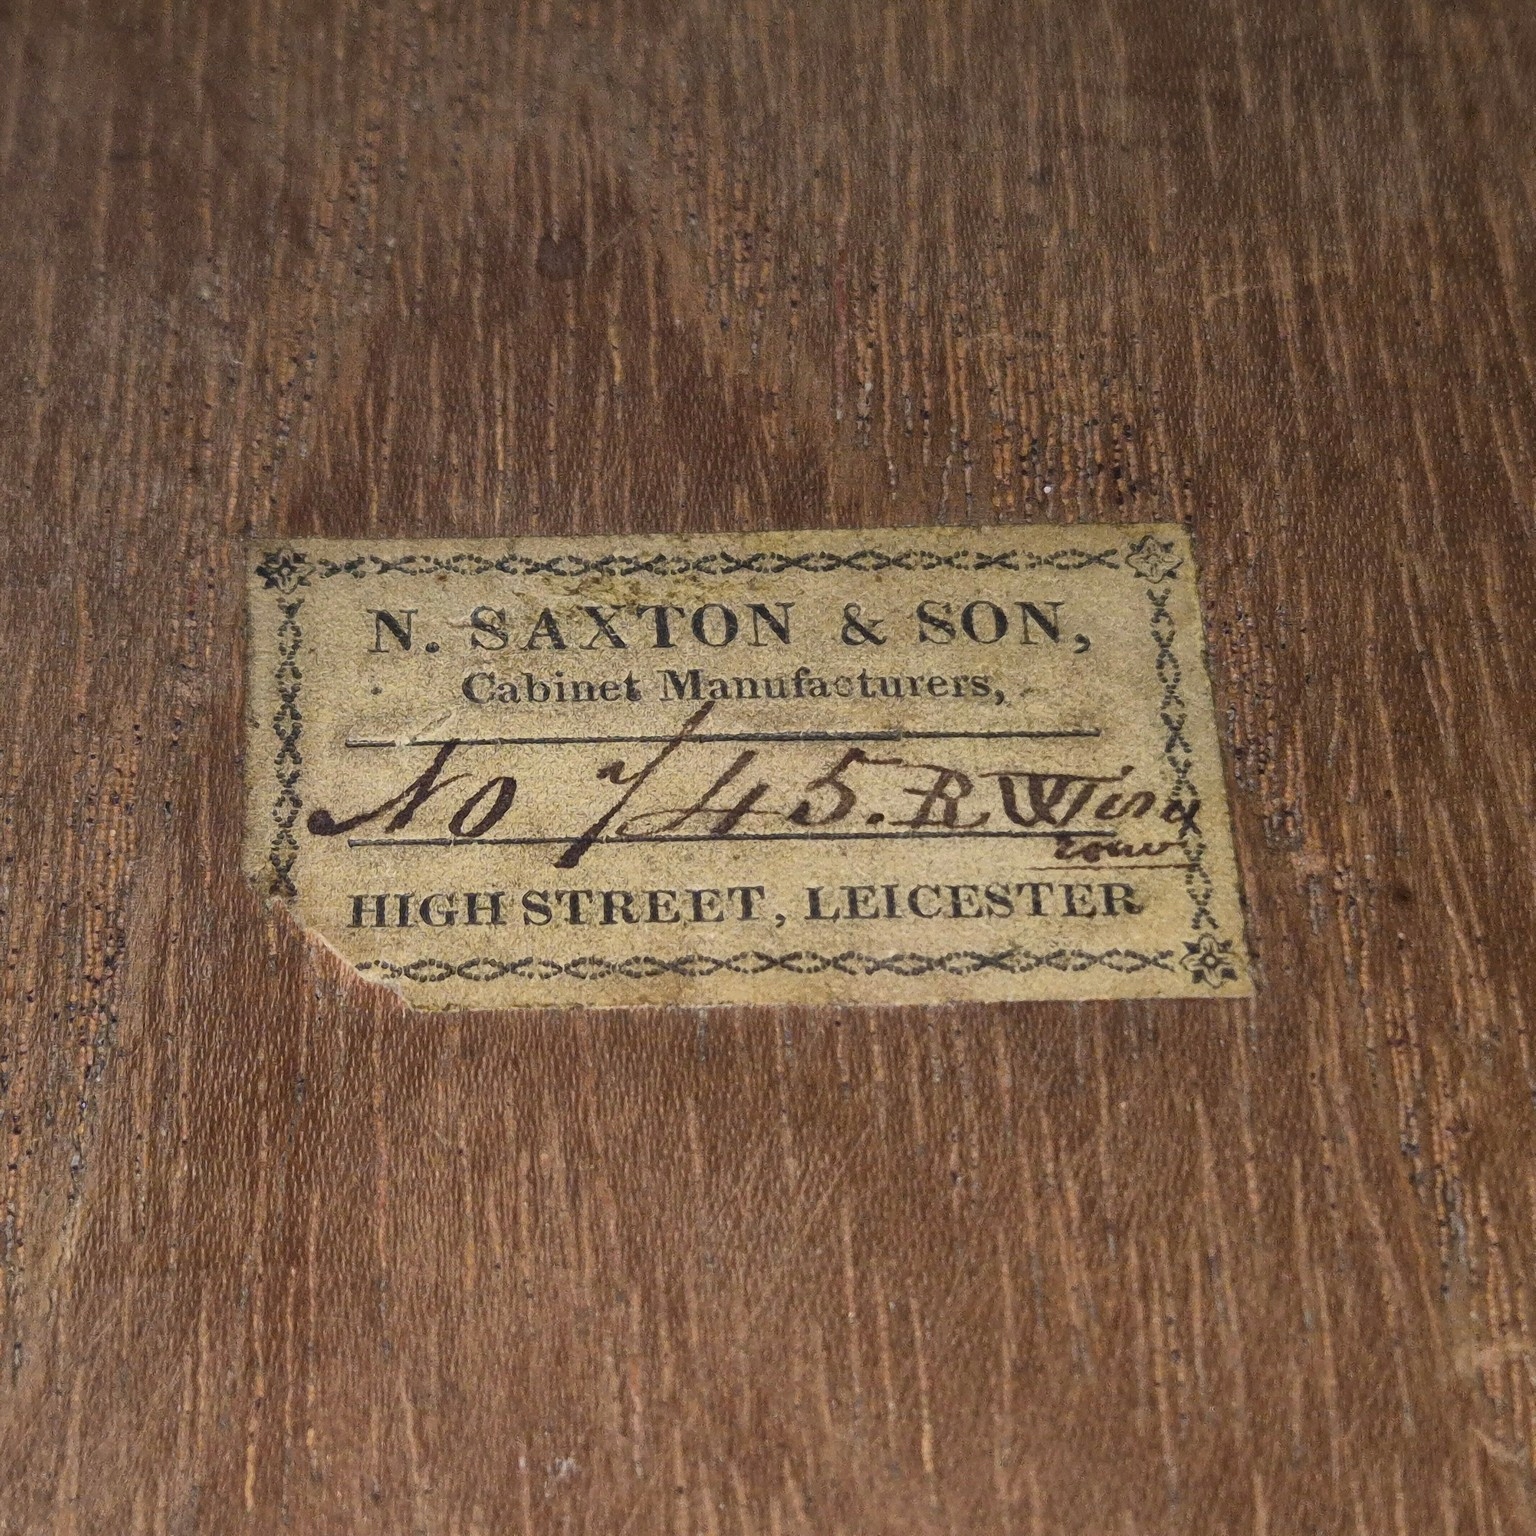 N. SAXTON & SON,
Cabinet Manufacturers,
No 745. R
HIGH STREET, LEICESTER